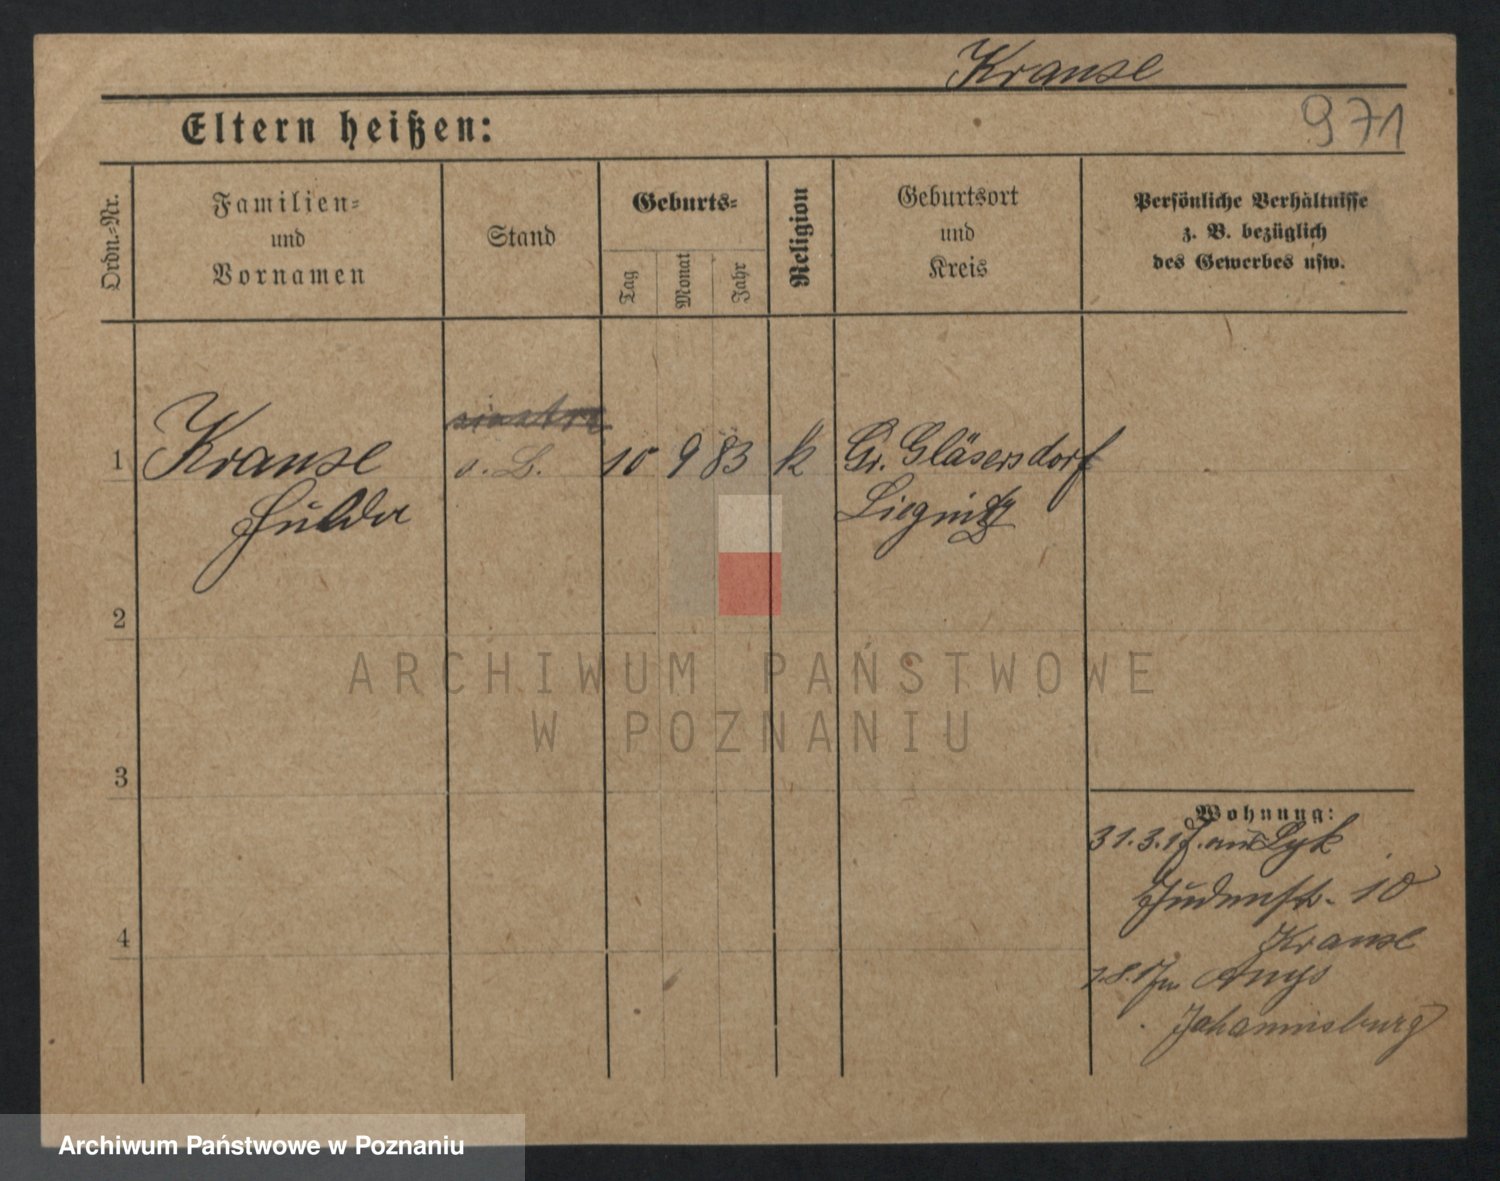 Krause
Eltern heißen:
971
Ordn.-Nr.
Familien-
und
Vornamen
Stand
Geburts-
Tag
Monat
Jahr
Religion
Geburtsort
und
Kreis
Persönliche Verhältnisse
z. B. bezüglich
des Gewerbes usw.
1
Krause
Hulda
o. B.
10
9
83
k
Gr. Gläsersdorf
Liegnitz
2
3
4
ARCHIWUM PAŃSTWOWE
W POZNANIU
Wohnung:
31.3.17. aus Lyk
Judenstr. 10
Krause
Arys
Johannisburg
Archiwum Państwowe w Poznaniu